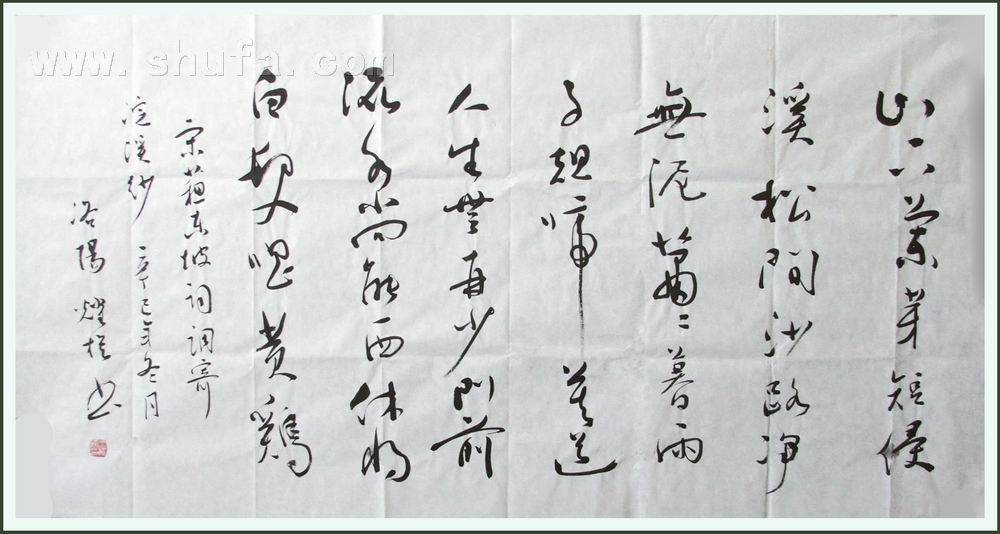 www.shufa.com
山下蘭芽短侵
溪松間沙路净
無泥蕭〻暮雨
子規啼莫道
人生無再少門前
流水尚能西休將
白髮唱黄鷄
宋蘇東坡詞調寄
浣溪紗 辛巳年冬月
洛陽 书